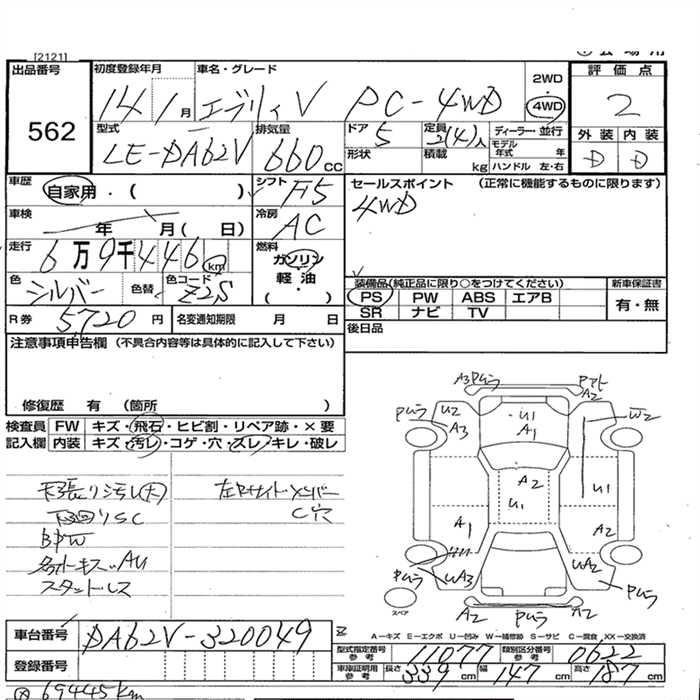 [2121]
出品番号
562
初度登録年月
14年 1月
車名・グレード
エブリィV PC-4WD
2WD
4WD
評価点
2
外装 内装
D D
型式
LE-DA62V
排気量
660cc
ドア
5
形状
定員
2(4)人
積載 kg
ディーラー・並行
モデル年式 年
ハンドル 左・右
車歴
自家用・( )
シフト
F5
セールスポイント (正常に機能するものに限ります)
4WD
車検
年 月( 日)
冷房
AC
走行
6万9千446km
燃料
ガソリン
軽油
・( )
色
シルバー
色替
色コード
Z2S
装備品(純正品に限り○をつけてください)
PS PW ABS エアB
SR ナビ TV
新車保証書
有・無
R券 5720円
名変通知期限 月 日
後日品
注意事項申告欄 (不具合内容等は具体的に記入して下さい)
修復歴 有 (箇所 )
検査員記入欄
FW キズ・飛石・ヒビ割・リペア跡・×要
内装 キズ・汚レ・コゲ・穴・スレ・キレ・破レ
天張り汚レ(大)
下廻りSC
左Rサイドメンバー
C穴
スタッドレス
A3 Pムラ
A2
Pムラ U2
A3
U1
A1
W2
A2
U1
U1
A1
A2
Pムラ UA3
UA2
Pムラ
A2 Pムラ A2
スペア
A-キズ E-エクボ U-凹み W-補修跡 S-サビ C-腐食 XX-交換済
車台番号 DA62V-320049
登録番号
型式指定番号 参考 11077
類別区分番号 参考 0622
車庫証明用 参考 長さ 339cm 幅 147cm 高さ 187cm
69445km